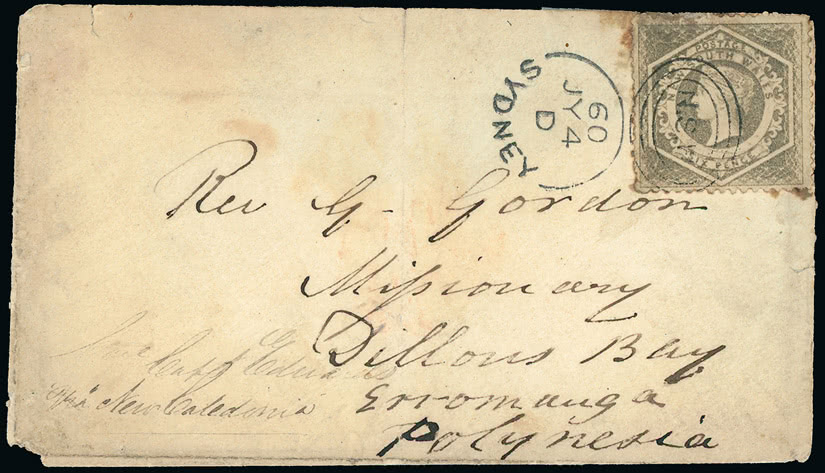 SYDNEY
60
JY 4
D
POSTAGE
NEW SOUTH WALES
SIX PENCE
N.S.W
Rev G. Gordon
Missionary
Dillons Bay
Erromanga
Polynesia
Capt Edwards
"Via" New Caledonia